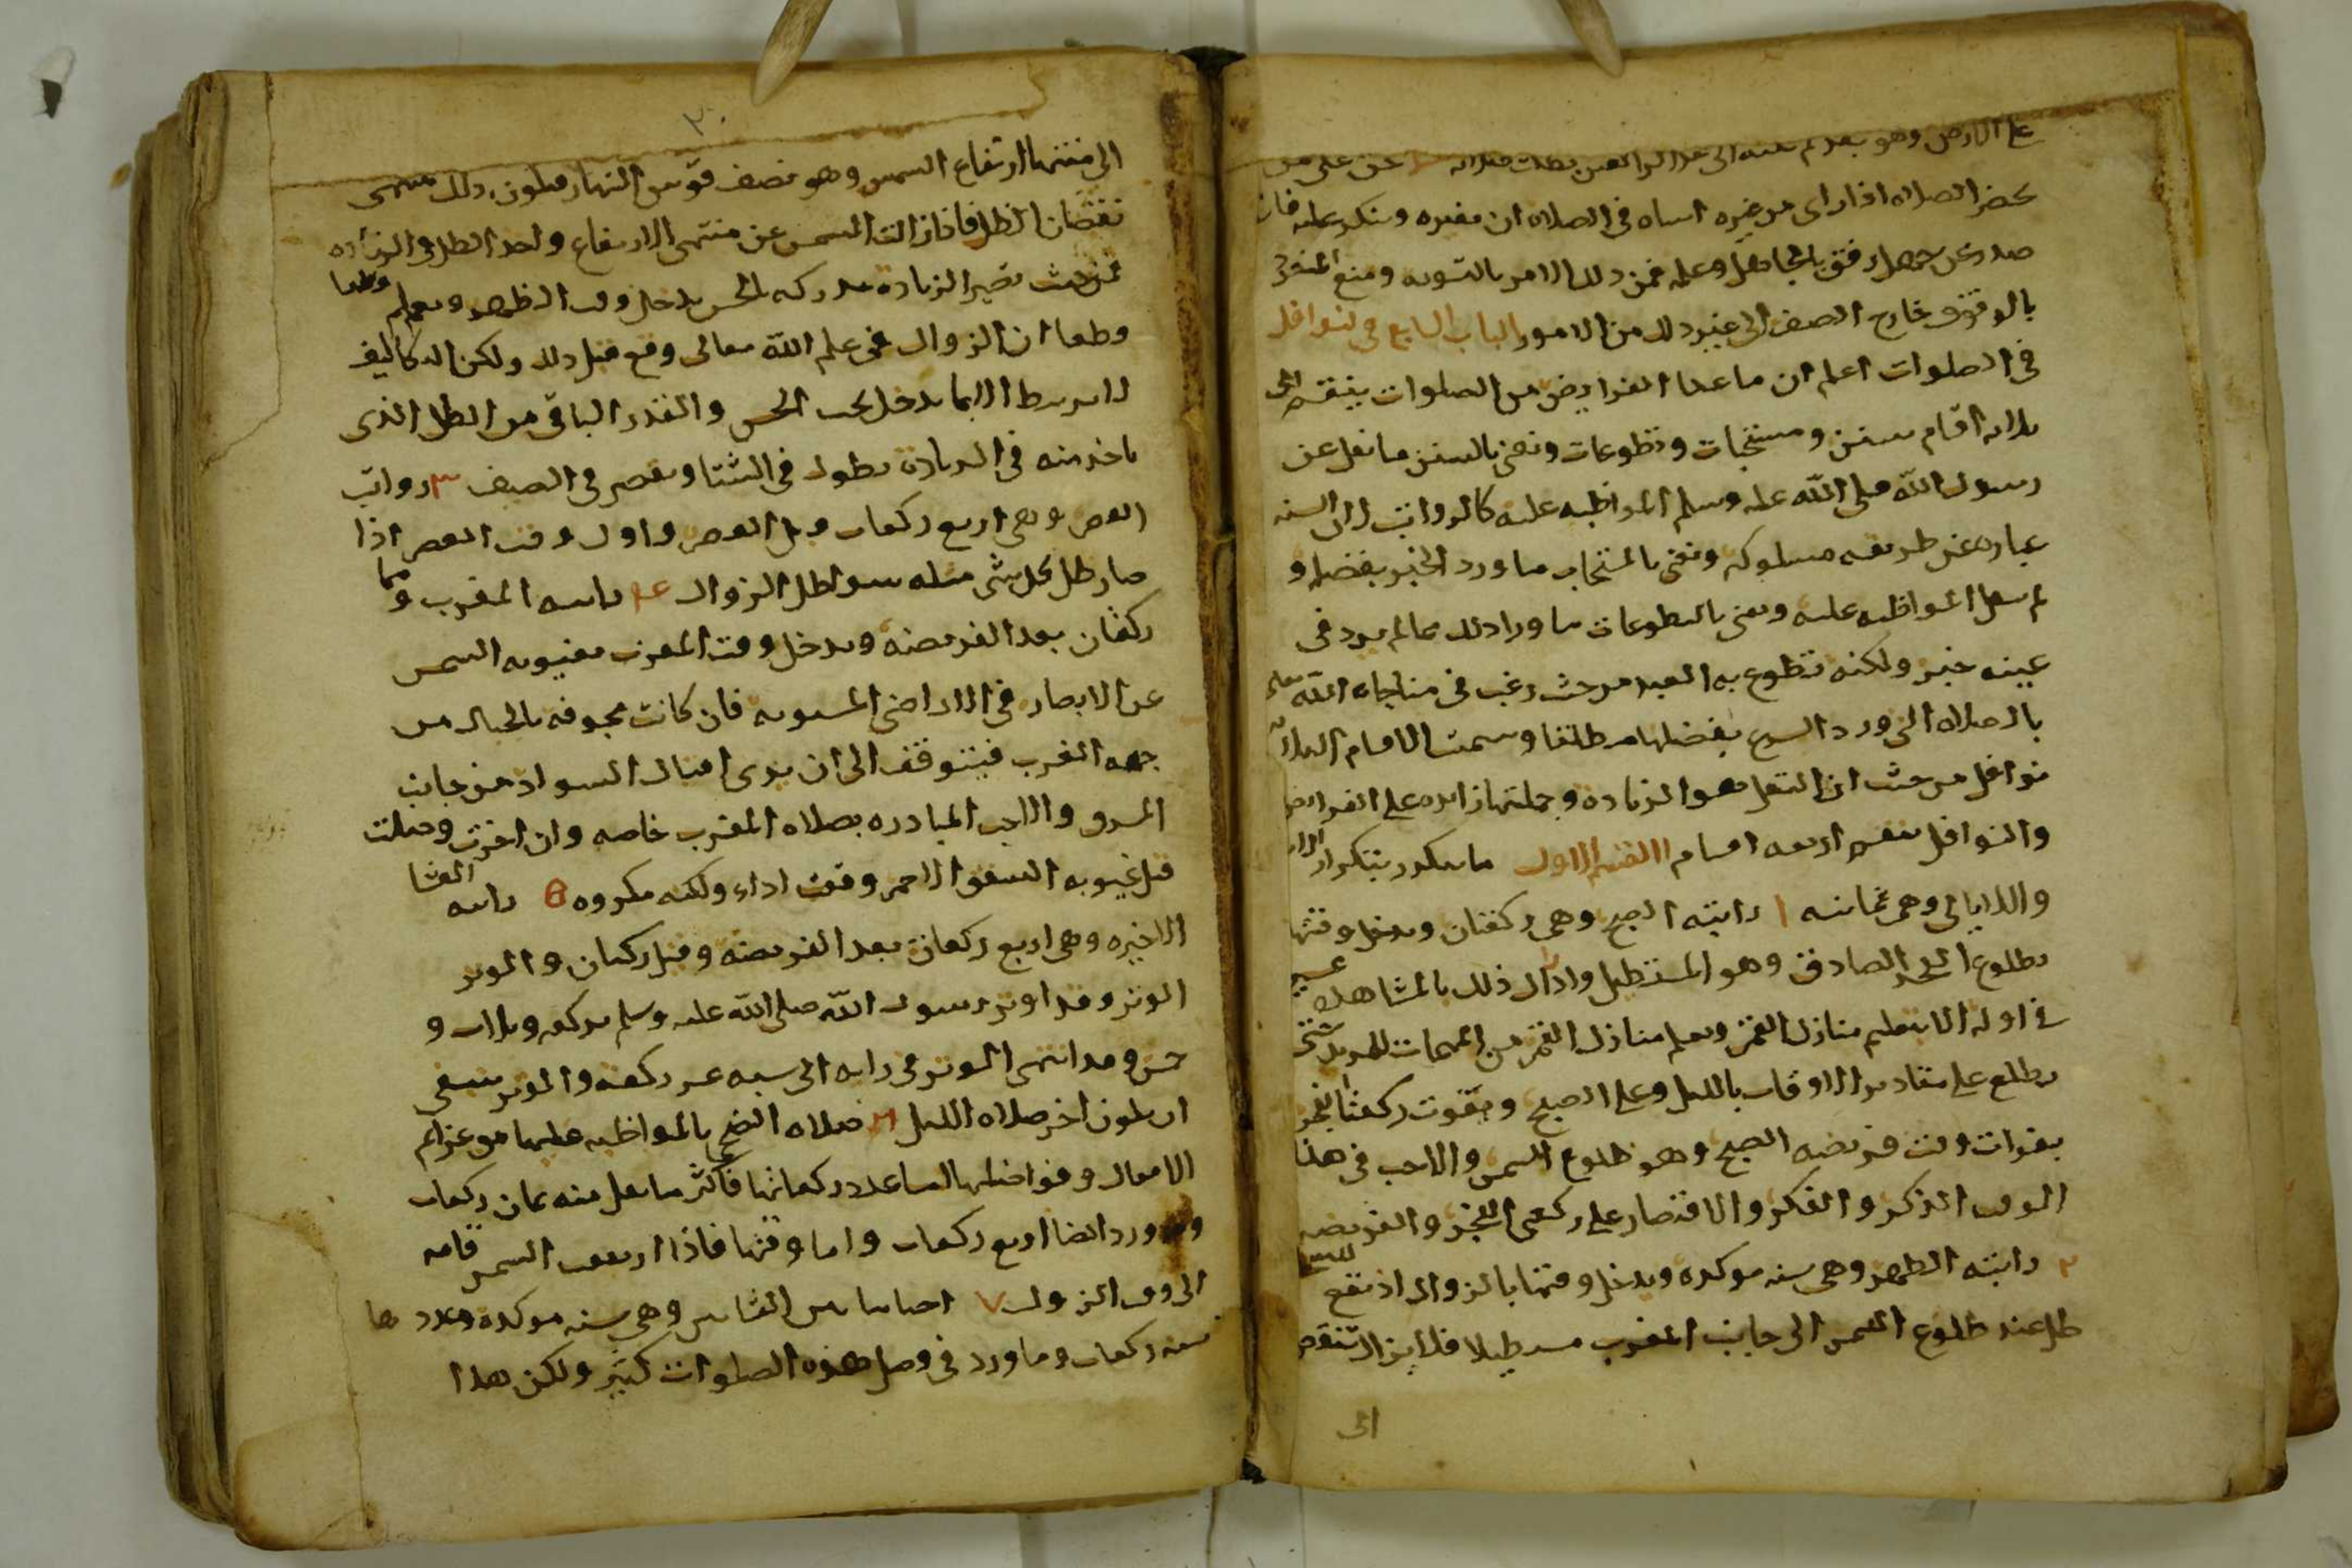 على الارض وهو يقدم عقبه الى هذا الحد العين بطلت صلاته على من
يحضر الصلاه اذا راى من غيره اساه في الصلاه ان يغيره وينكر عليه فان
صدر عن جهل رفق بالجاهل وعلمه فمن ذلك الامر بالتسويه ومنع المنفرد
بالوقوف خارج الصف الى غير ذلك من الامور الباب السابع في النوافل
في الصلوات اعلم ان ما عدا الفرايض من الصلوات ينقسم الى
ثلاثه اقسام سنن ومستحبات وتطوعات ونعني بالسنن ما نقل عن
رسول الله صلى الله عليه وسلم المواظبه عليه كالرواتب لان السنه
عباره عن طريقه مسلوكه ونعني بالمستحاب ما ورد الخبر بفضله و
لم ينقل المواظبه عليه ونعني بالتطوعات ما وراء ذلك مما لم يرد في
عينه خبر ولكنه تطوع به العبد من حيث رغب في مناجاه الله تعالى
بالصلاه التي ورد الشرع بفضلها مطلقا وسميت الاقسام الثلاثه
نوافل من حيث ان النفل هو الزياده وجملتها زايده على الفرايض
والنوافل تنقسم اربعه اقسام القسم الاول ما يتكرر بتكرار الايام
والليالي وهي ثمانيه ١ راتبه الصبح وهي ركعتان ويدخل وقتها
بطلوع الفجر الصادق وهو المستطيل وادراك ذلك بالمشاهده عسير
في اوله الا بتعلم منازل القمر وتعلم منازل القمر من المهمات للمريد حتى
يطلع على مقادير الاوقات بالليل وعلى الصبح ويفوت ركعتا الفجر
بفوات وقت فريضه الصبح وهو طلوع الشمس والاحب في هذا
الوقت الذكر والفكر والاقتصار على ركعتي الفجر والفريضه
٢ راتبه الظهر وهي سنه موكده ويدخل وقتها بالزوال اذ يقع للشي
ظل عند طلوع الشمس الى جانب المغرب مستطيلا فلا يزال ينقص
الى
٣٠
الى منتها ارتفاع الشمس وهو نصف قوس النهار فيكون ذلك منتهى
نقصان الظل فاذا زالت الشمس عن منتهى الارتفاع واخذ الظل في الزياده
فمن حيث تصير الزيادة مدركه بالحس يدخل وقت الظهر ويعلم قطعا
قطعا ان الزوال في علم الله تعالى وقع قبل ذلك ولكن التكاليف
لا ترتبط الا بما يدخل تحت الحس والقدر الباقي من الظل الذي
ياخذ منه في الزيادة يطول في الشتا ويقصر في الصيف ٣ رواتب
العصر وهي اربع ركعات قبل العصر واول وقت العصر اذا
صار ظل كل شي مثله سوا ظل الزوال ٤ راتبه المغرب وهما
ركعتان بعد الفريضه ويدخل وقت المغرب بغيبوبه الشمس
عن الابصار في الاراضي المستويه فان كانت محفوفه بالجبال من
جهه الغرب فيتوقف الى ان يرى اقبال السواد من جانب
المشرق والاحب المبادره بصلاه المغرب خاصه وان اخرت وصليت
قبل غيبوبه الشفق الاحمر وقعت اداء ولكنه مكروه ٥ راتبه العشا
الاخيره وهي اربع ركعات بعد الفريضه وقيل ركعتان و ٥ الوتر
الوتر وقد اوتر رسول الله صلى الله عليه وسلم بركعه وثلاث و
خمس وقد انتهى الوتر في رايه الى سبعه عشر ركعه والوتر ينبغي
ان يكون اخر صلاه الليل ٦ صلاه الضحى بالمواظبه عليها من عزايم
الافعال وفواضلها اما عدد ركعاتها فاكثر ما نقل منه ثمان ركعات
وقد ورد ايضا اربع ركعات واما وقتها فاذا ارتفعت الشمس قامه
الى وقت الزوال ٧ احيا ما بين العشايين وهي سنه موكده وعددها
سته ركعات وما ورد في فضل هذه الصلوات كثير ولكن هذا